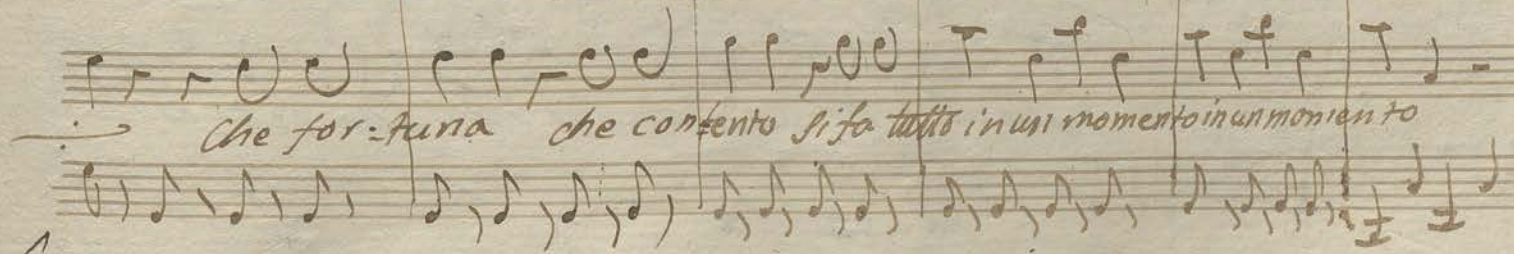 Che for=tuna che contento si fa tutto in un momento in un momento